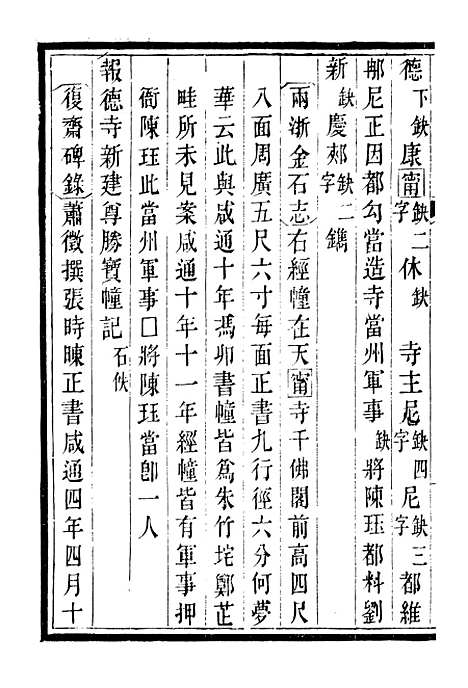 德下缺康甯缺二字休缺寺主尼缺四字尼缺三字都維
那尼正因都勾當造寺當州軍事缺將陳珏都料劉
新缺慶郟缺二字鐫
兩浙金石志右經幢在天甯寺千佛閣前高四尺
八面周廣五尺六寸每面正書九行徑六分何夢
華云此與咸通十年馮卯書幢皆爲朱竹垞鄭芷
畦所未見案咸通十年十一年經幢皆有軍事押
衙陳珏此當州軍事□將陳珏當卽一人
報德寺新建尊勝寶幢記石佚
復齋碑錄蕭徵撰張時暕正書咸通四年四月十